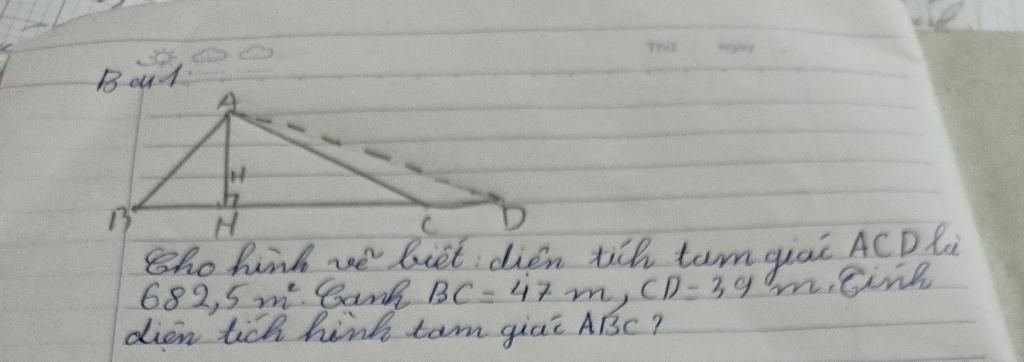 Thứ ngày
Bài 1:
A
H
B H C D
Cho hình vẽ biết: diện tích tam giác ACD là
682,5 m². Cạnh BC = 47 m, CD = 39 m. Tính
diện tích hình tam giác ABC?